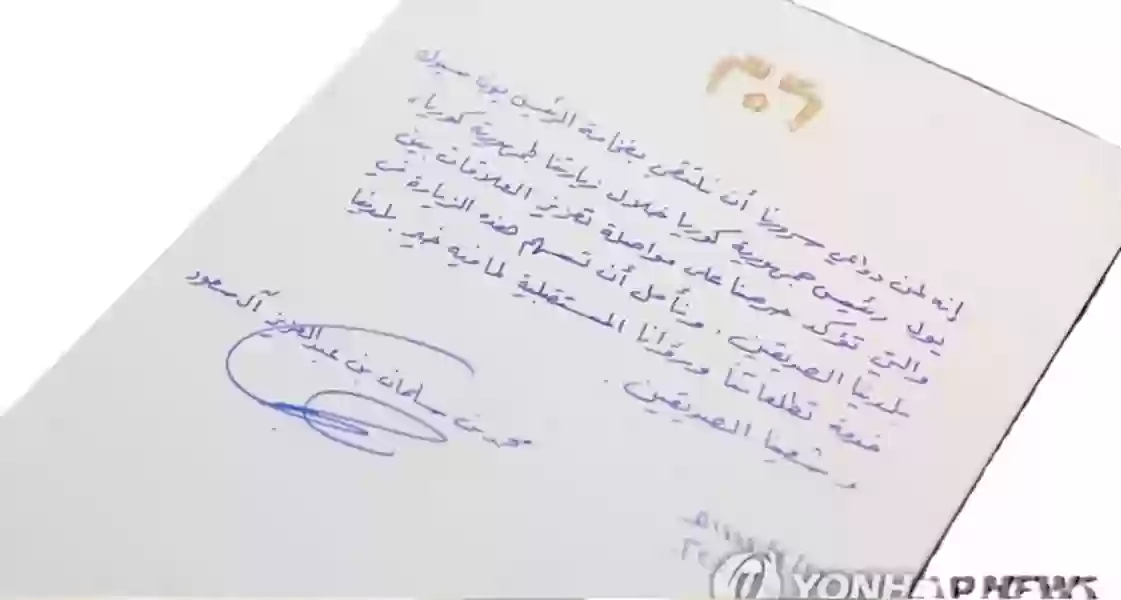 إنه لمن دواعي سرورنا أن نلتقي بفخامة الرئيس يون سوك
يول رئيس جمهورية كوريا خلال زيارتنا لجمهورية كوريا،
والتي تؤكد حرصنا على مواصلة تعزيز العلاقات بين
بلدينا الصديقين. ونأمل أن تسهم هذه الزيارة في
خدمة تطلعاتنا ورؤانا المستقبلية لما فيه خير بلدينا
و شعبينا الصديقين.
محمد بن سلمان بن عبدالعزيز آل سعود
YONHAP NEWS